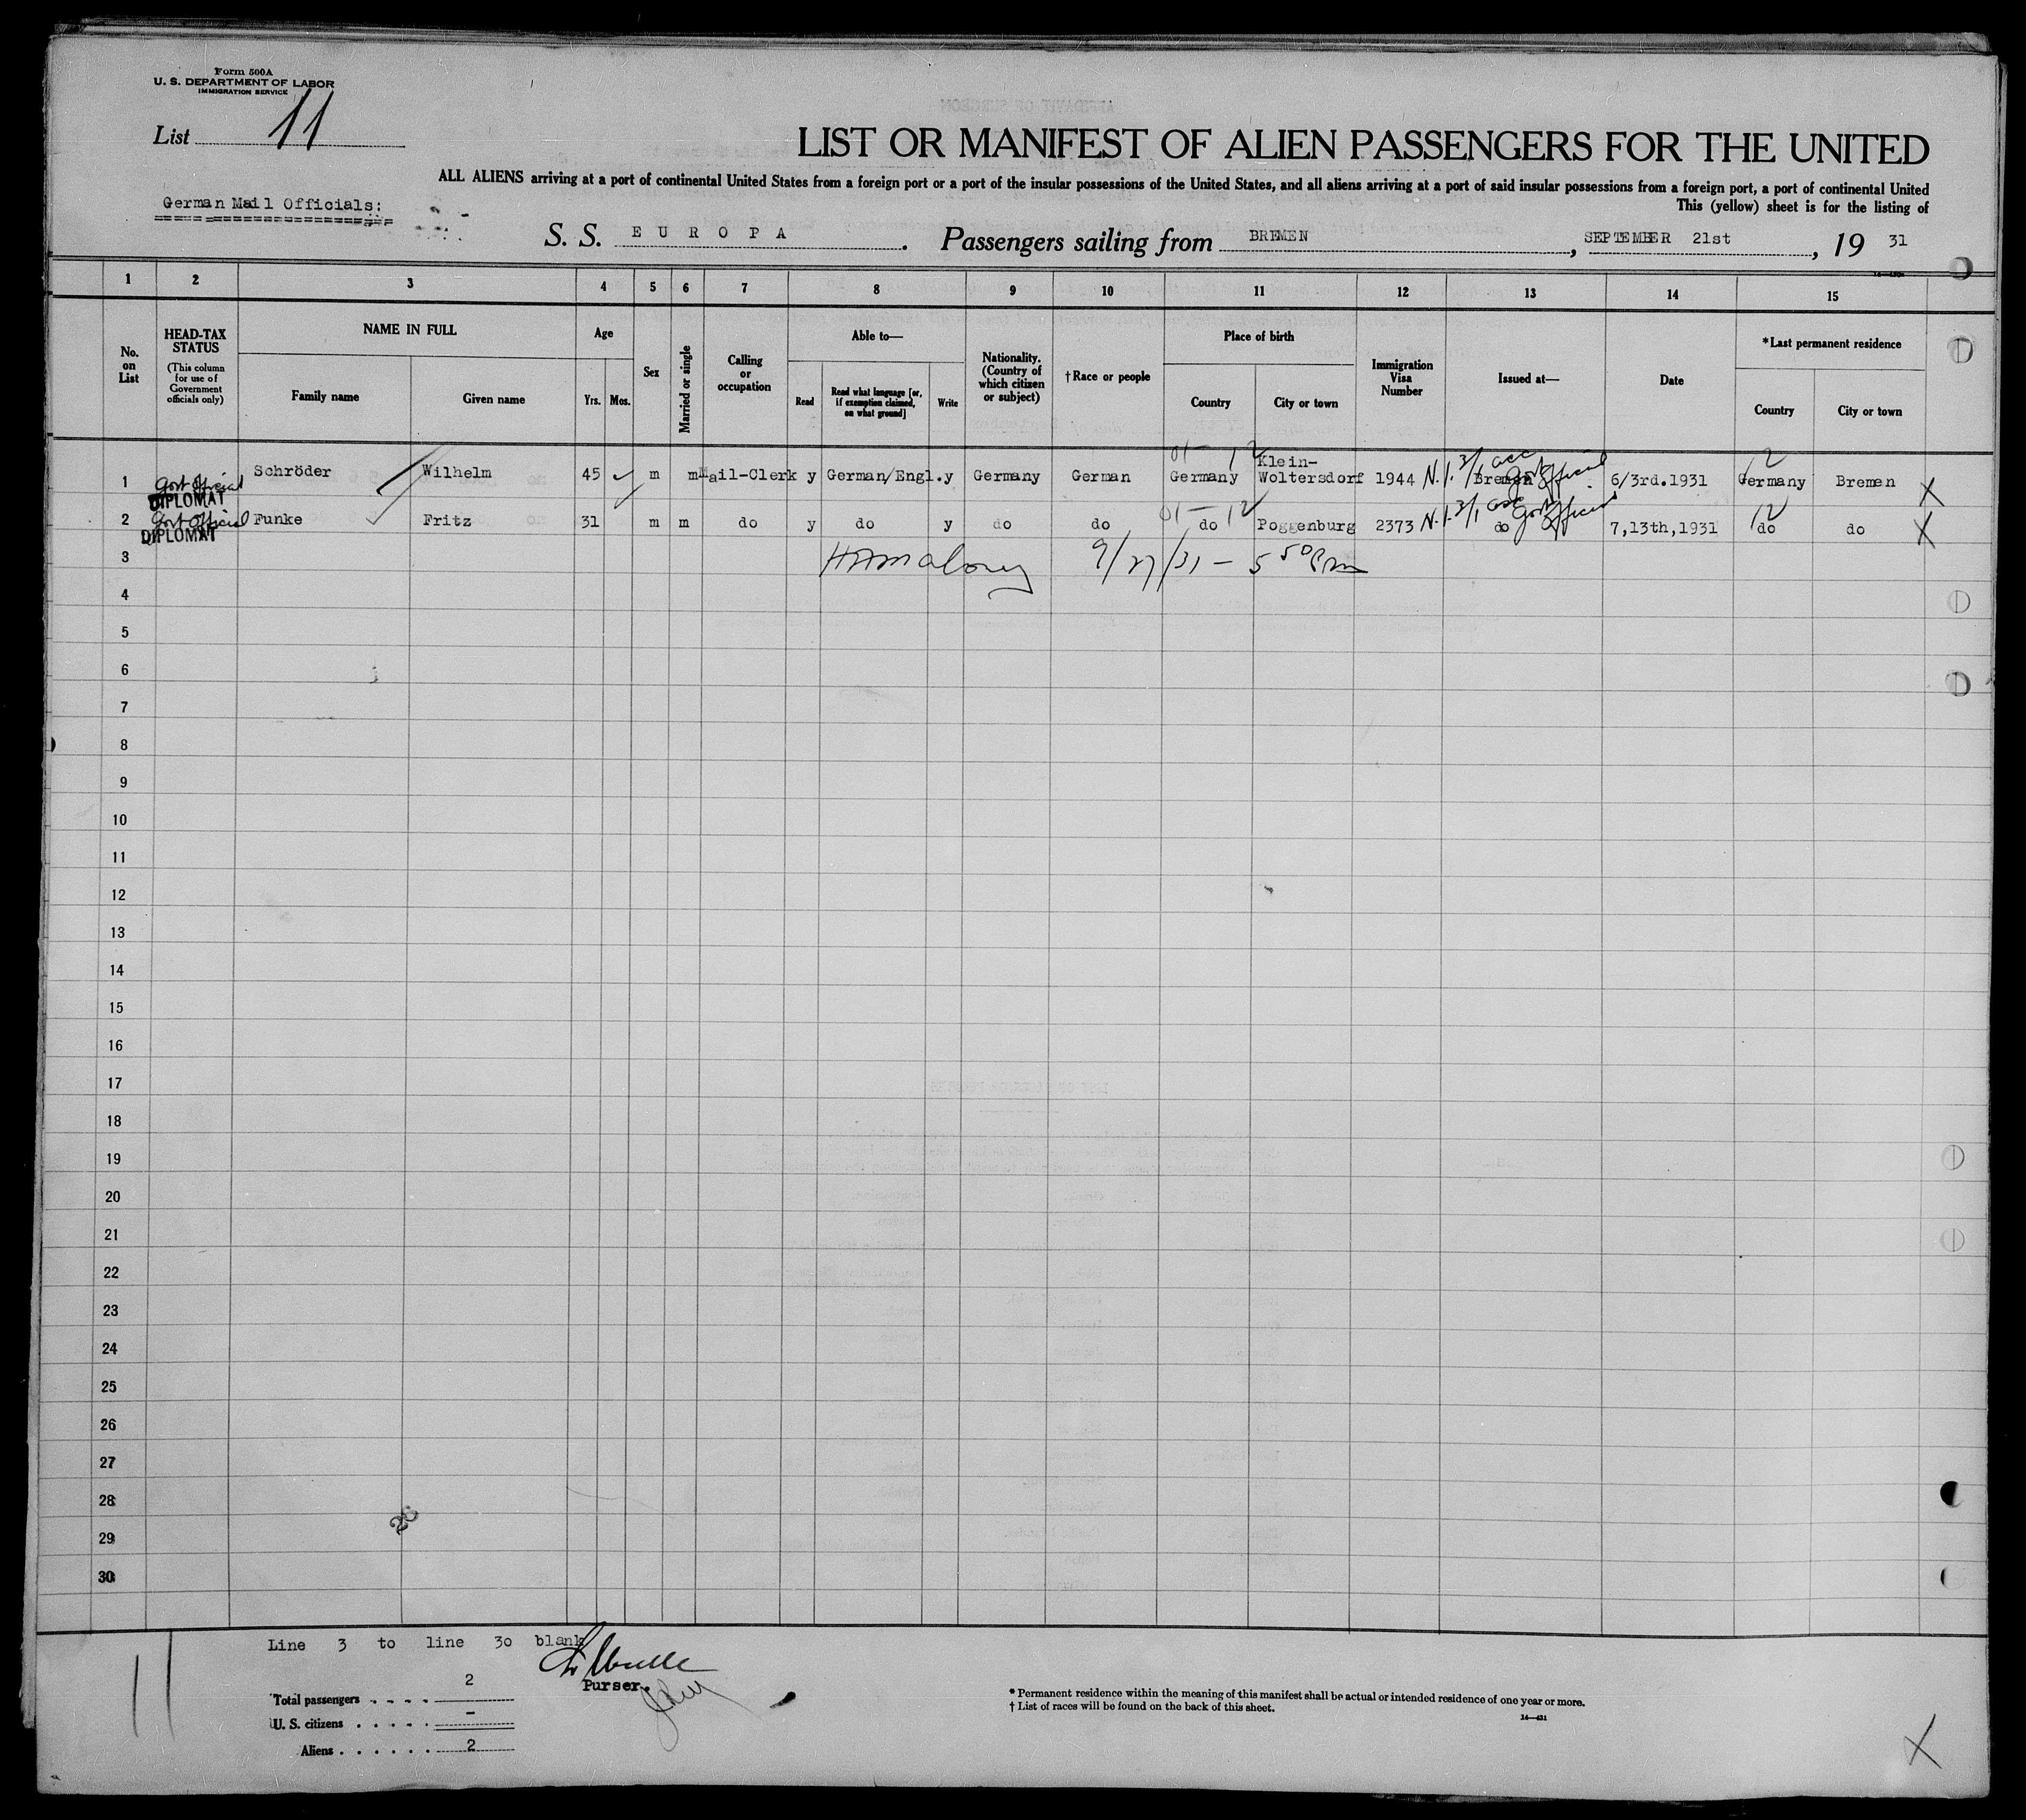 Form 500A
U. S. DEPARTMENT OF LABOR
IMMIGRATION SERVICE
List 11
LIST OR MANIFEST OF ALIEN PASSENGERS FOR THE UNITED
ALL ALIENS arriving at a port of continental United States from a foreign port or a port of the insular possessions of the United States, and all aliens arriving at a port of said insular possessions from a foreign port, a port of continental United
This (yellow) sheet is for the listing of
German Mail Officials:
S. S. EUROPA. Passengers sailing from BREMEN, SEPTEMBER 21st, 19 31
1 2 3 4 5 6 7 8 9 10 11 12 13 14 15
No. on List
HEAD-TAX STATUS
(This column for use of Government officials only)
NAME IN FULL
Family name Given name
Age
Yrs. Mos.
Sex
Married or single
Calling or occupation
Able to—
Read
Read what language [or, if exemption claimed, on what ground]
Write
Nationality. (Country of which citizen or subject)
†Race or people
Place of birth
Country City or town
Immigration Visa Number
Issued at—
Date
*Last permanent residence
Country City or town
1 Govt Official DIPLOMAT Schröder Wilhelm 45 m m Mail-Clerk y German/Engl. y Germany German 01-12 Germany Klein-Woltersdorf 1944 N.I. 3/1 acc Govt Official Bremen 6/3rd.1931 12 Germany Bremen X
2 Govt Official DIPLOMAT Funke Fritz 31 m m do y do y do do 01-12 do Poggenburg 2373 N.I. 3/1 acc Govt Official do 7,13th,1931 12 do do X
3 9/27/31 - 5 50 Pm
4
5
6
7
8
9
10
11
12
13
14
15
16
17
18
19
20
21
22
23
24
25
26
27
28
29
30
11
Line 3 to line 30 blank
Purser.
Total passengers . . . . 2
U. S. citizens . . . . . -
Aliens . . . . . . 2
* Permanent residence within the meaning of this manifest shall be actual or intended residence of one year or more.
† List of races will be found on the back of this sheet.
14—431
X